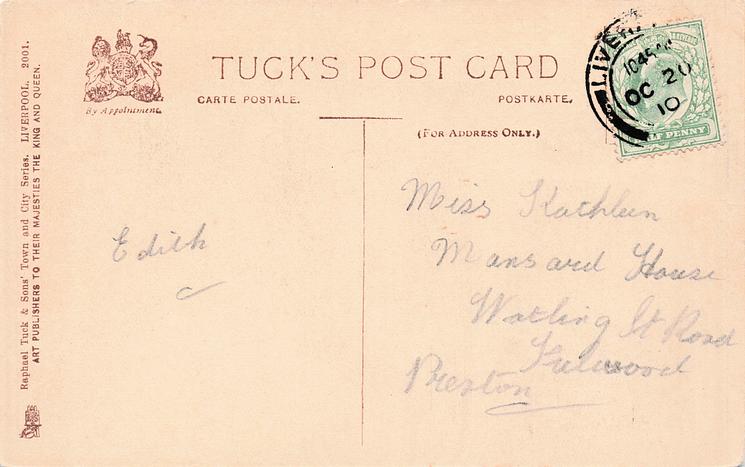 TUCK'S POST CARD
By Appointment.
CARTE POSTALE.
POSTKARTE,
(FOR ADDRESS ONLY.)
LIVER
1045
OC 20
10
LF PENNY
Raphael Tuck & Sons' Town and City Series. LIVERPOOL. 2001.
ART PUBLISHERS TO THEIR MAJESTIES THE KING AND QUEEN.
Edith
Miss Kathleen
Mansard House
Watling St Road
Fulwood
Preston